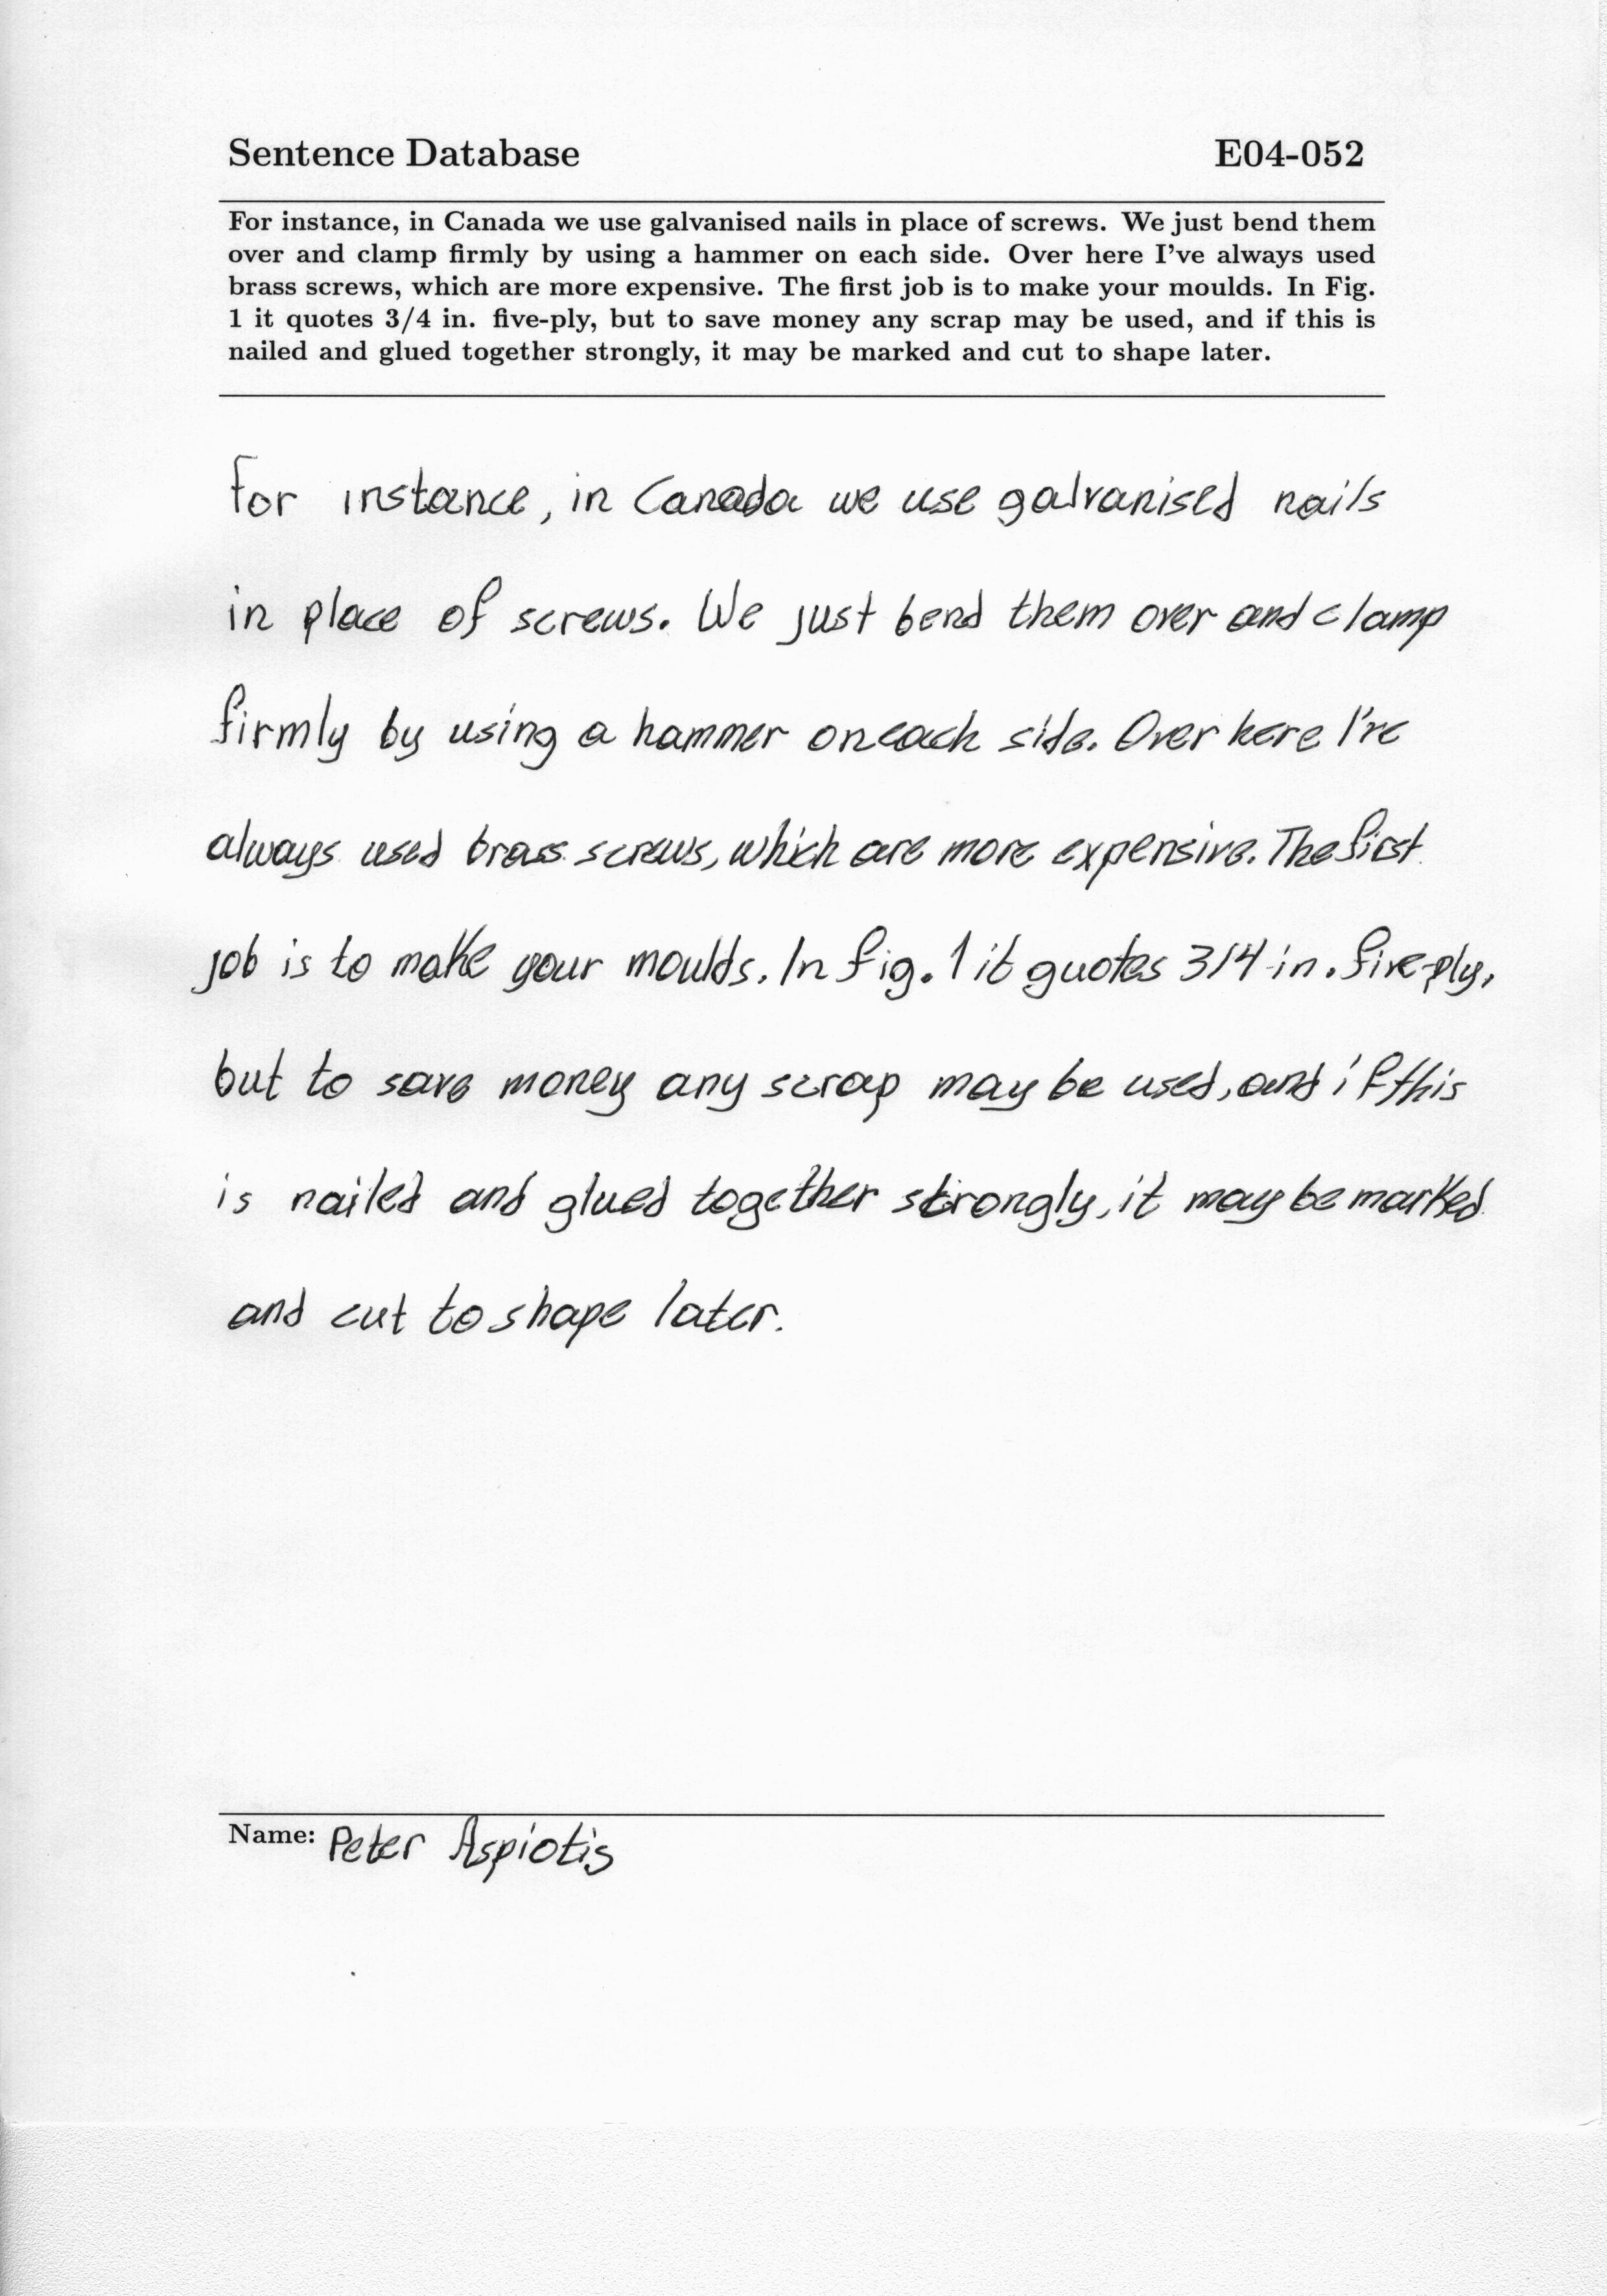 Sentence Database E04-052
For instance, in Canada we use galvanised nails in place of screws. We just bend them
over and clamp firmly by using a hammer on each side. Over here I've always used
brass screws, which are more expensive. The first job is to make your moulds. In Fig.
1 it quotes 3/4 in. five-ply, but to save money any scrap may be used, and if this is
nailed and glued together strongly, it may be marked and cut to shape later.
For instance, in Canada we use galvanised nails
in place of screws. We just bend them over and clamp
firmly by using a hammer on each side. Over here I've
always used brass screws, which are more expensive. The first
job is to make your moulds. In fig. 1 it quotes 3/4 in. five-ply,
but to save money any scrap may be used, and if this
is nailed and glued together strongly, it may be marked
and cut to shape later.
Name: Peter Aspiotis